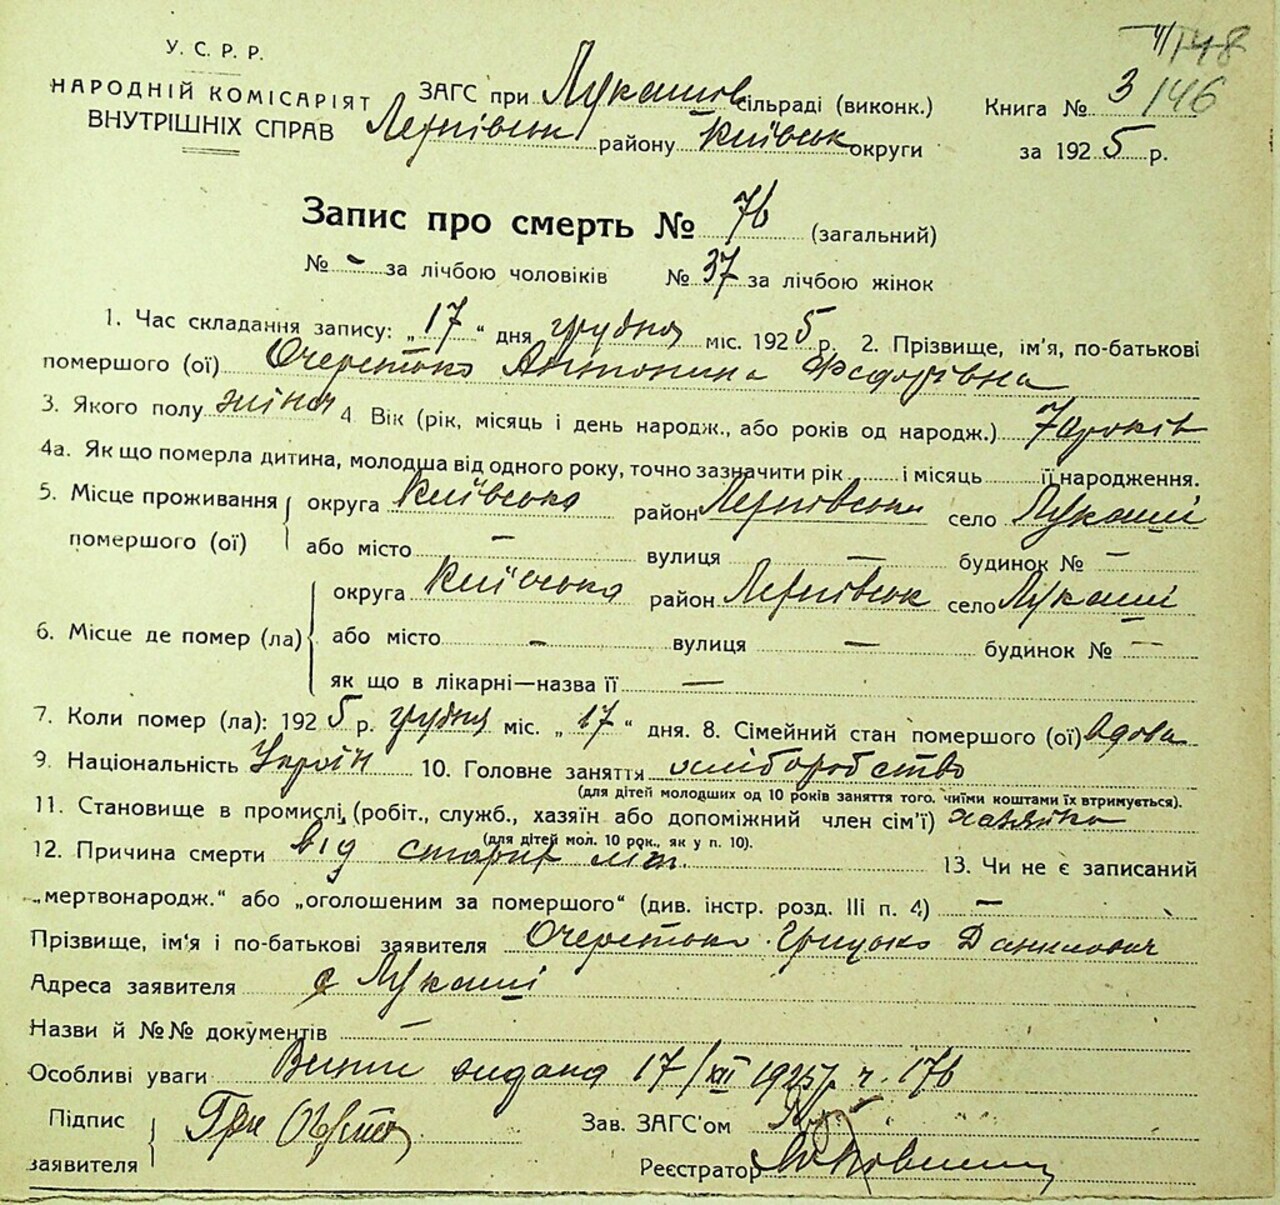 148
У. С. Р. Р.
НАРОДНІЙ КОМІСАРІЯТ
ВНУТРІШНІХ СПРАВ
ЗАГС при Лукашів сільраді (виконк.)
району Київськ округи
Книга № 3 /146
за 1925 р.
Запис про смерть № 76 (загальний)
№ - за лічбою чоловіків № 37 за лічбою жінок
1. Час складання запису: „17“ дня грудня міс. 1925 р. 2. Прізвище, ім'я, по-батькові
помершого (ої) Очеретько Антонина Федорівна
3. Якого полу жіноч 4 Вік (рік, місяць і день народж., або років од народж.) 70 років
4а. Як що померла дитина, молодша від одного року, точно зазначити рік і місяць її народження.
5. Місце проживання помершого (ої) округа Київська район село Лукаші
або місто — вулиця — будинок № —
6. Місце де помер (ла) округа Київська район село Лукаші
або місто - вулиця — будинок № —
як що в лікарні—назва її —
7. Коли помер (ла): 1925 р. грудня міс. „17“ дня. 8. Сімейний стан помершого (ої) вдова
9. Національність Україн 10. Головне заняття хліборобство
(для дітей молодших од 10 років заняття того, чиїми коштами їх втримується).
11. Становище в промислі, (робіт., служб., хазяїн або допоміжний член сім'ї) хазяйка
(для дітей мол. 10 рок., як у п. 10).
12. Причина смерти від старих літ. 13. Чи не є записаний
„мертвонародж.“ або „оголошеним за помершого“ (див. інстр. розд. III п. 4) —
Прізвище, ім'я і по-батькові заявителя Очеретько Грицько Данилович
Адреса заявителя с Лукаші
Назви й №№ документів —
Особливі уваги видана 17/XII 1925 р. ч. 176
Підпис заявителя Гри
Зав. ЗАГС'ом
Реєстратор